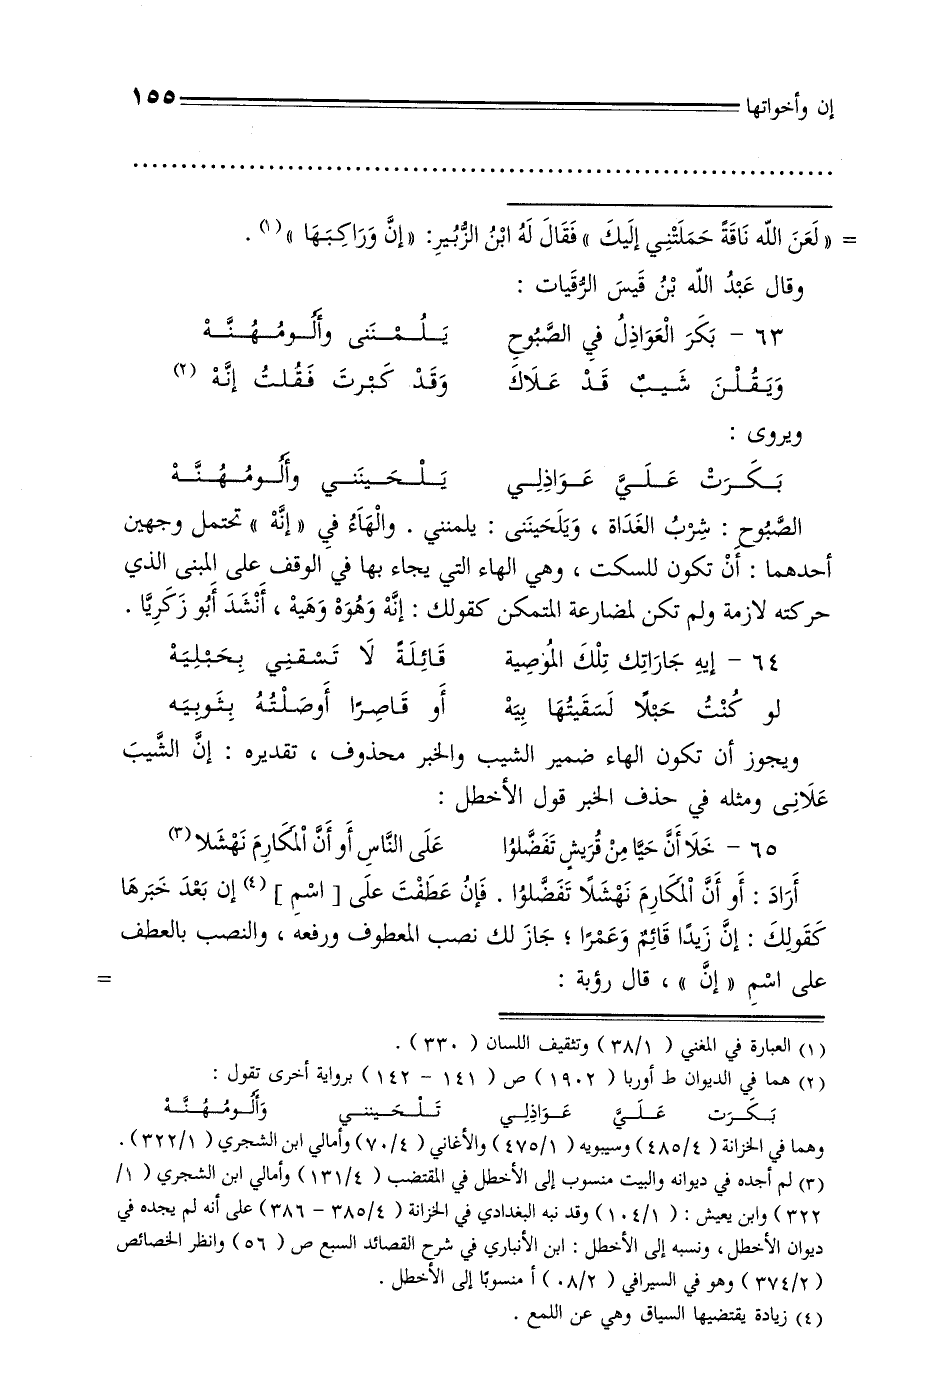 إن وأخواتها ١٥٥
................................................................
= « لَعَنَ الله نَاقَةً حَمَلَتْنِي إِلَيكَ » فَقَالَ لَهُ ابْنُ الزُّبيرِ: «إنَّ وَرَاكِبَهَا »(١) .
وقال عَبْدُ الله بْنُ قَيسَ الرُّقَيات :
٦٣ - بَكَرَ الْعَوَاذِلُ فِي الصَّبُوحِ يَـلُـمْـنَنى وأَلُـومُـهُـنَّـهْ
وَيَقُـلْـنَ شَـيـبٌ قَـدْ عَـلَاكَ وَقَدْ كَبْرتَ فَقُـلـتُ إنَّهْ (٢)
ويروى :
بَـكَـرَتْ عَـلَـيَّ عَـوَاذِلِـي يَـلْـحَـيـنَنِي وأَلُـومُـهُـنَّـهْ
الصَّبُوحِ : شِرْبُ الغَدَاة ، وَيَلحَيننى : يلمننى . والْهَاءُ فِي « إنَّهْ » تحتمل وجهين
أحدهما : أنْ تكون للسكت ، وهي الهاء التي يجاء بها في الوقف على المبنى الذي
حركته لازمة ولم تكن لمضارعة المتمكن كقولك : إنَّهْ وَهُوَهْ وَهَيهْ ، أَنْشَدَ أَبُو زَكَرِيَّا .
٦٤ - إيهِ جَارَاتِك تِلْكَ المُوْصِية قَائِلَةً لَا تَسْقنِي بِحَبْلِيَهْ
لو كُنْتُ حَبْلًا لَسَقَيتُهَا بِيَهْ أو قَاصِرًا أَوصَلْتُهُ بِثَوبِيَه
ويجوز أن تكون الهاء ضمير الشيب والخبر محذوف ، تقديره : إنَّ الشَّيبَ
عَلَانِى ومثله في حذف الخبر قول الأخطل :
٦٥ - خَلَا أَنَّ حَيًّا مِنْ قُرَيشٍ تَفَضَّلوُا عَلَى النَّاسِ أَو أَنَّ المْكَارِمَ نَهْشَلا(٣)
أَرَادَ : أو أَنَّ الْمَكَارِمَ نَهْشَلًا تَفَضَّلُوا . فَإنُ عَطَفْتَ علَى [ اسْمِ ] (٤) إن بَعْدَ خَبَرِهَا
كَقَولِكَ : إنَّ زَيدًا قَائِمٌ وَعَمْرًا ؛ جَازَ لك نصب المعطوف ورفعه ، والنصب بالعطف
على اسْمِ « إنَّ » ، قال رؤبة : =
(١) العبارة في المغني ( ٣٨/١ ) وتثقيف اللسان ( ٣٣٠ ) .
(٢) هما في الديوان ط أوربا ( ١٩٠٢ ) ص ( ١٤١ - ١٤٢ ) برواية أخرى تقول :
بَـكَـرَت عَـلَـيَّ عَـوَاذِلِـي تَـلْـحَـيـنَنِي وَأَلُـومُـهُـنَّـهْ
وهما في الخزانة ( ٤٨٥/٤ ) وسيبويه ( ٤٧٥/١ ) والأغاني ( ٧٠/٤ ) وأمالي ابن الشجري ( ٣٢٢/١ ) .
(٣) لم أجده في ديوانه والبيت منسوب إلى الأخطل في المقتضب ( ١٣١/٤ ) وأمالي ابن الشجري ( ١/
٣٢٢ ) وابن يعيش : ( ١٠٤/١ ) وقد نبه البغدادي في الخزانة ( ٣٨٥/٤ - ٣٨٦ ) على أنه لم يجده في
ديوان الأخطل ، ونسبه إلى الأخطل : ابن الأنباري في شرح القصائد السبع ص ( ٥٦ ) وانظر الخصائص
( ٣٧٤/٢ ) وهو في السيرافي ( ٠٨/٢ ) أ منسوبًا إلى الأخطل .
(٤) زيادة يقتضيها السياق وهي عن اللمع .